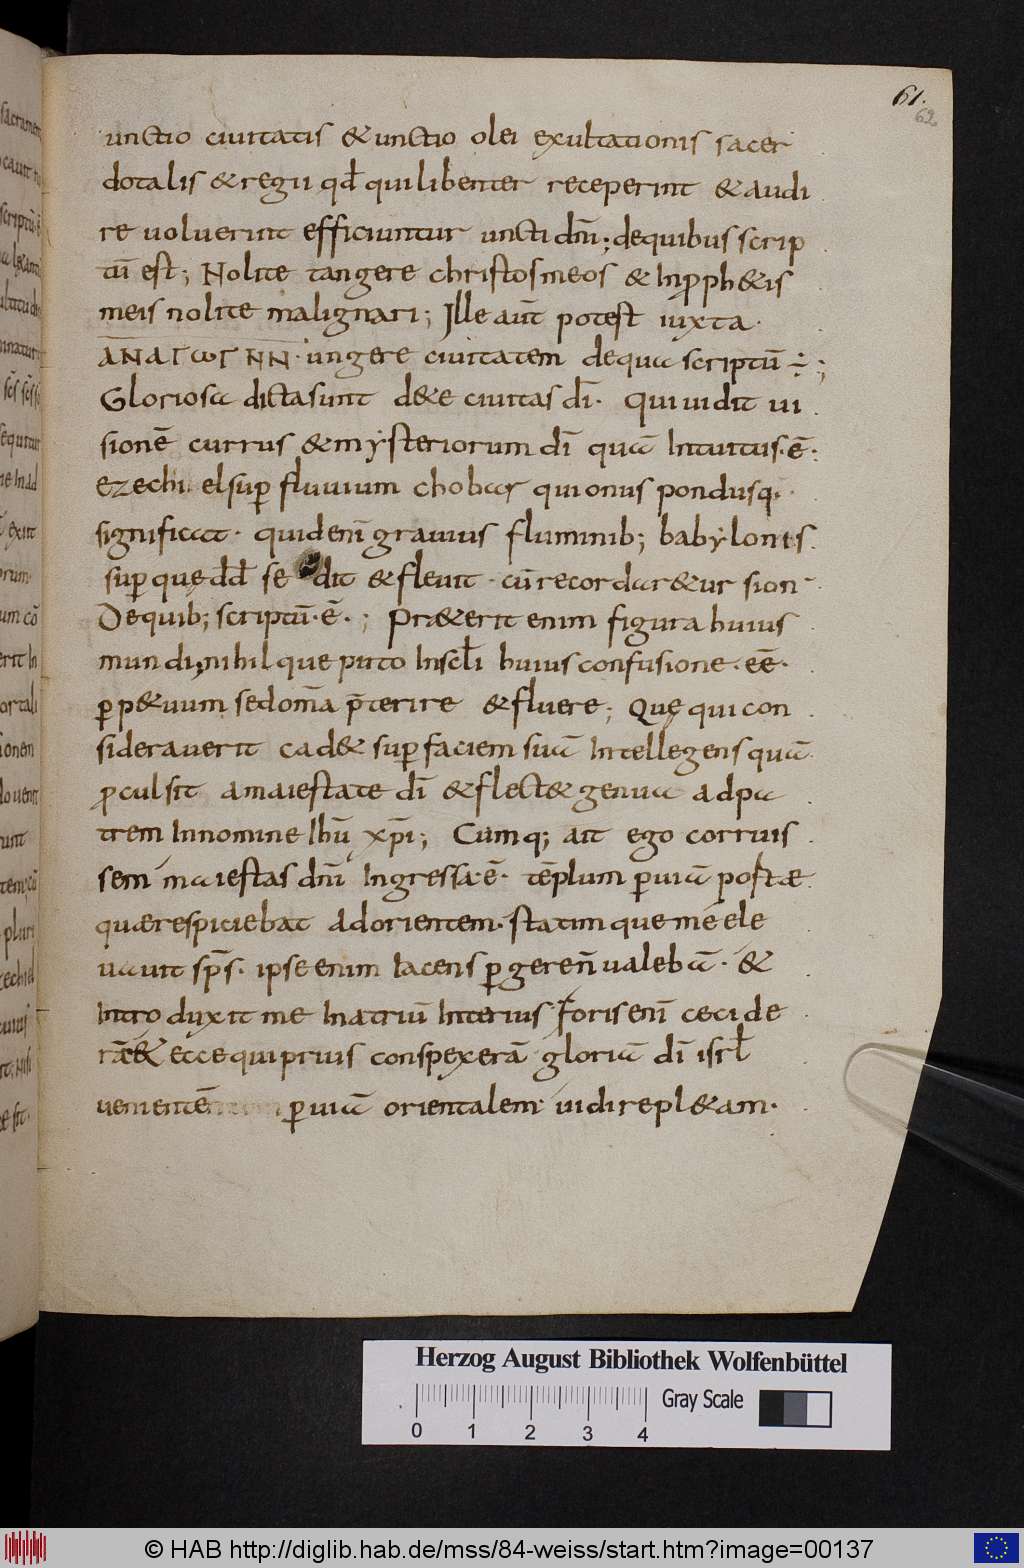 61.
62
unctio ciuitatis & unctio olei exultationis sacer
dotalis & regii qđ qui libenter receperint & audi
re uoluerint efficiuntur uncti dn̄i; de quibus scrip
tū est; Nolite tangere christos meos & in p̱ph&is
meis nolite malignari; Ille aūt potest iuxta
ungere ciuitatem de qua scriptū ÷;
Gloriosa dicta sunt de te ciuitas dī. Qui uidit ui
sionē currus & mysteriorum dī quā intuitus. ē.
ezechi elsuꝑ fluuium chobar qui onus pondusq.
significat. quid enī grauius fluminib; babylonis
suꝑ quę dđ se dit & fleuit. cū recordar&ur sion
De quib; scriptū. ē.; Præ&erit enim figura huius
mundi, nihil que puto in scłi huius confusione. eē.
ꝑp&uum sed om̄a p̄terire & fluere; Quę qui con
siderauerit cad& suꝑ faciem suā intellegens quā
ꝓcul sit a maiestate dī & flect& genua ad pa
trem in nomine ihū xp̄i; Cumq; ait ego corruis
sem maiestas dn̄i ingressa. ē. tēplum ꝑ uiā portæ
quæ respiciebat ad orientem. statim que me ele
uauit sp̄s. ipse enim iacens ꝑgere n̄ ualebā. &
introduxit me in atriū interius foris enī cecide
rā & ecce qui prius conspexerā gloriā dī isrł
uenientē ꝑ uiā orientalem uidi repl&am.
Herzog August Bibliothek Wolfenbüttel
Gray Scale
0 1 2 3 4
© HAB http://diglib.hab.de/mss/84-weiss/start.htm?image=00137